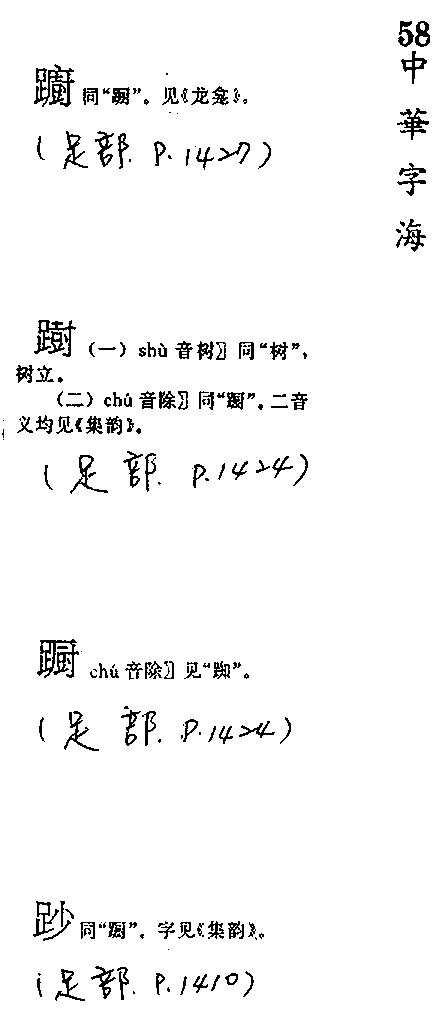 58
中華字海
蹰 同“蹰”。见《龙龛》。
(足部. P.1427)
(一) shù 音树〗同“树”,
树立。
(二) chú 音除〗同“蹰”。二音
义均见《集韵》。
(足部. P.1424)
chú 音除〗见“踟”。
(足部. P.1424)
同“蹰”。字见《集韵》。
(足部. P.1410)